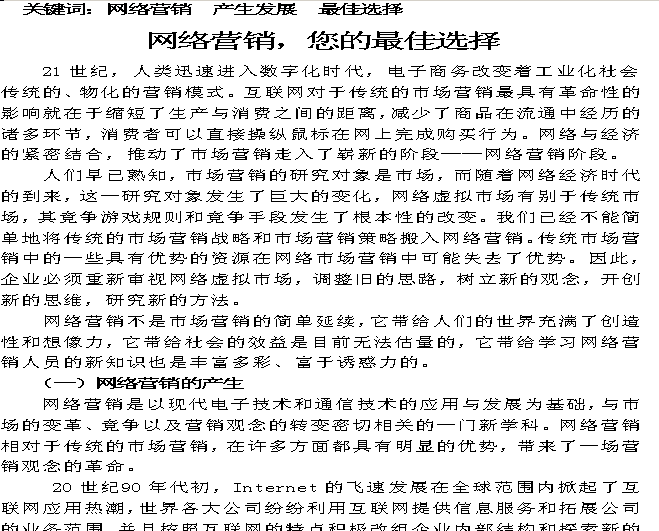 关键词：网络营销　产生发展　最佳选择
网络营销，您的最佳选择
21 世纪，人类迅速进入数字化时代，电子商务改变着工业化社会
传统的、物化的营销模式。互联网对于传统的市场营销最具有革命性的
影响就在于缩短了生产与消费之间的距离，减少了商品在流通中经历的
诸多环节，消费者可以直接操纵鼠标在网上完成购买行为。网络与经济
的紧密结合，推动了市场营销走入了崭新的阶段——网络营销阶段。
人们早已熟知，市场营销的研究对象是市场，而随着网络经济时代
的到来，这一研究对象发生了巨大的变化，网络虚拟市场有别于传统市
场，其竞争游戏规则和竞争手段发生了根本性的改变。我们已经不能简
单地将传统的市场营销战略和市场营销策略搬入网络营销。传统市场营
销中的一些具有优势的资源在网络市场营销中可能失去了优势。因此，
企业必须重新审视网络虚拟市场，调整旧的思路，树立新的观念，开创
新的思维，研究新的方法。
网络营销不是市场营销的简单延续，它带给人们的世界充满了创造
性和想像力，它带给社会的效益是目前无法估量的，它带给学习网络营
销人员的新知识也是丰富多彩、富于诱惑力的。
（一）网络营销的产生
网络营销是以现代电子技术和通信技术的应用与发展为基础，与市
场的变革、竞争以及营销观念的转变密切相关的一门新学科。网络营销
相对于传统的市场营销，在许多方面都具有明显的优势，带来了一场营
销观念的革命。
20 世纪90 年代初，Internet 的飞速发展在全球范围内掀起了互
联网应用热潮，世界各大公司纷纷利用互联网提供信息服务和拓展公司
的业务范围，并且按照互联网的特点积极改组企业内部结构和探索新的